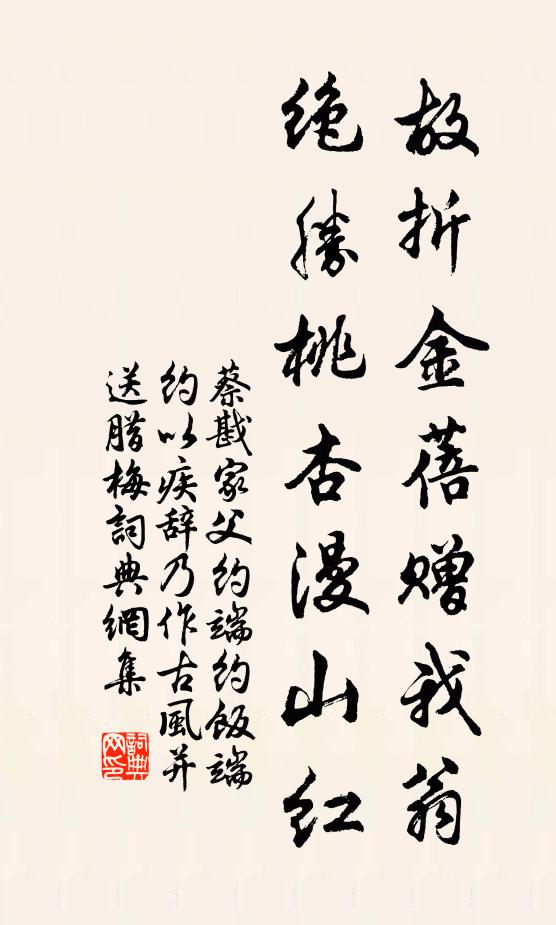 故折金蓓赠我翁
绝勝桃杏漫山红
蔡戡家父约端约飯端
约以疾辞乃作古風并
送腊梅詞典網集
詞典
网印